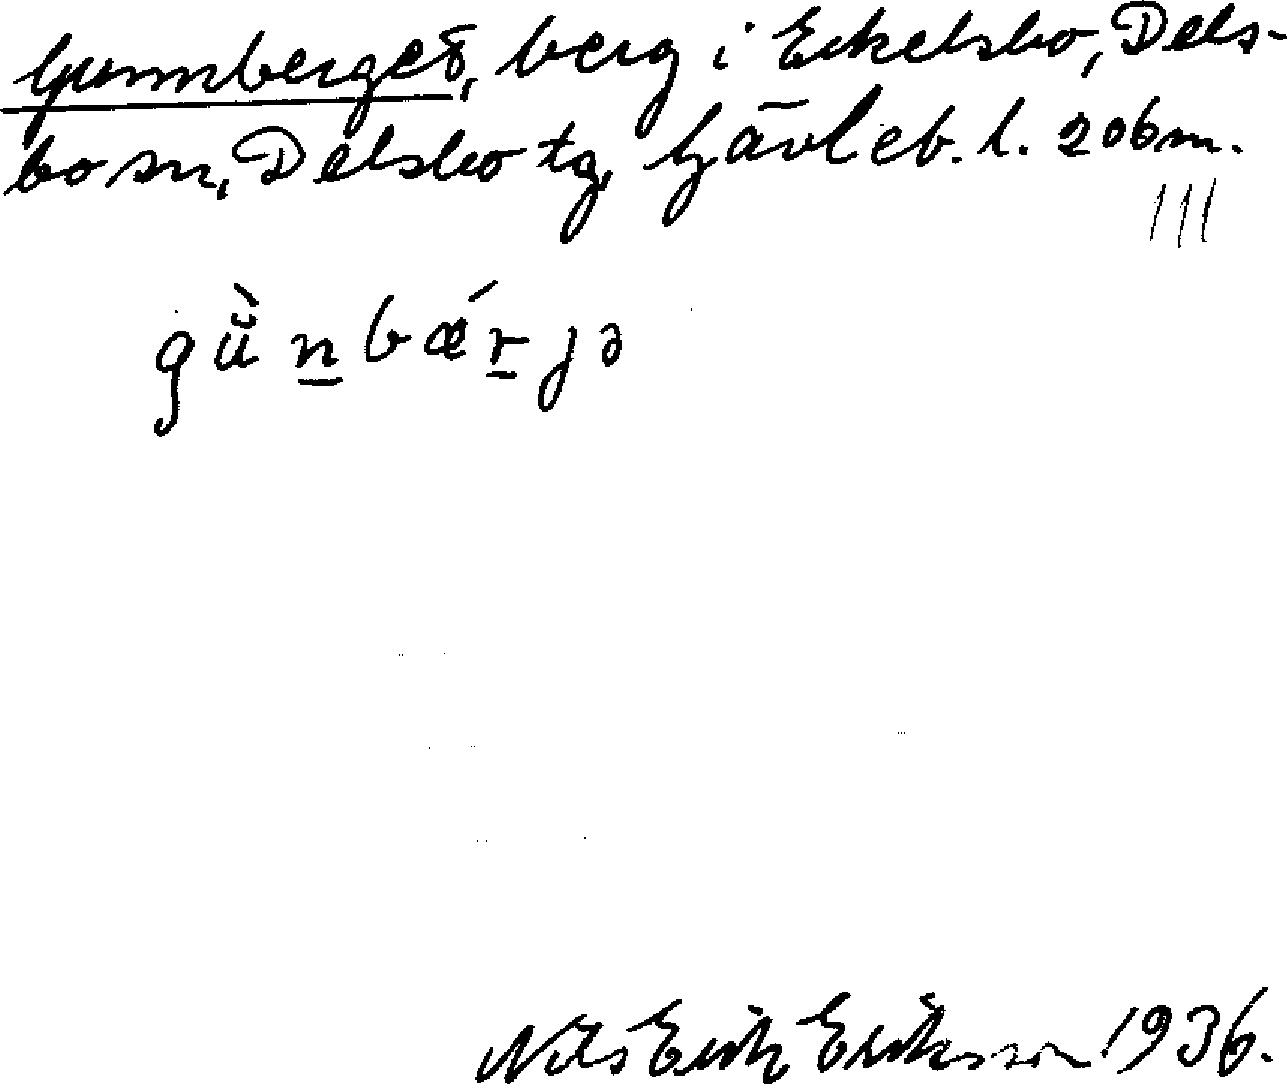 Gunnberget, berg i Eckelsbo, Dels-
bo sn, Delsbo tg, Gävleb. l. 206 m.
III
gu�
̀n̲bǽr̲jə
Nils Erik Eriksson 1936.